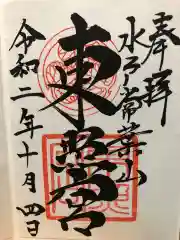 奉拝
水戸常葉山
東照宮
令和二年十月四日